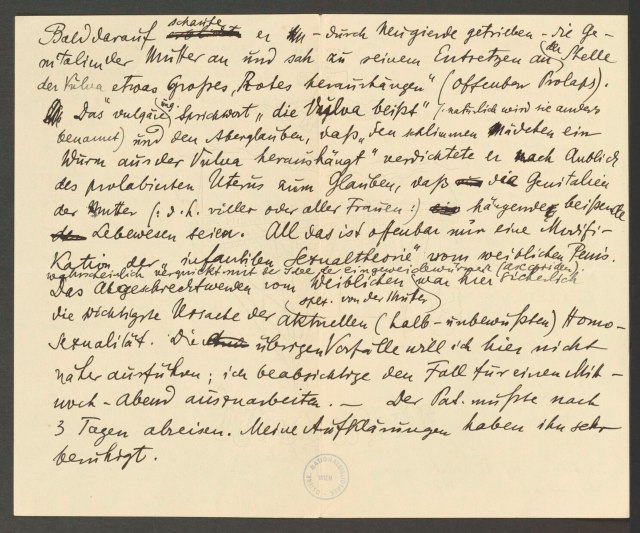 Bald darauf schaute er – durch Neugierde getrieben – die Ge-
nitalien der Mutter an und sah zu seinem Entsetzen an der Stelle
der Vulva etwas „Großes, Rotes heraushängen" (offenbar Prolaps).
Das vulgäre ung. Sprichwort „die Vulva beißt" (: natürlich wird sie anders
benannt) und den Aberglauben, daß „den schlimmen Mädchen ein
Wurm aus der Vulva heraushängt" verdichtete er nach Anblick
des prolabierten Uterus zum Glauben, daß die Genitalien
der Mutter (: d. h. vieler oder aller Frauen :) hängende, beißende
Lebewesen seien. All das ist offenbar nur eine Modifi-
kation der „infantilen Sexualtheorie" vom weiblichen Penis.
wahrscheinlich verquickt mit der Idee der Eingeweidewürmer (Ascariden).
Das Abgeschrecktwerden vom Weiblichen war hier sicherlich
spez. von der Mutter
die wichtigste Ursache der aktuellen (halb-unbewußten) Homo-
sexualität. Die übrigen Vorfälle will ich hier nicht
näher ausführen; ich beabsichtige den Fall für einen Mitt-
woch-Abend auszuarbeiten. — Der Pat. mußte nach
3 Tagen abreisen. Meine Aufklärungen haben ihn sehr
beruhigt.